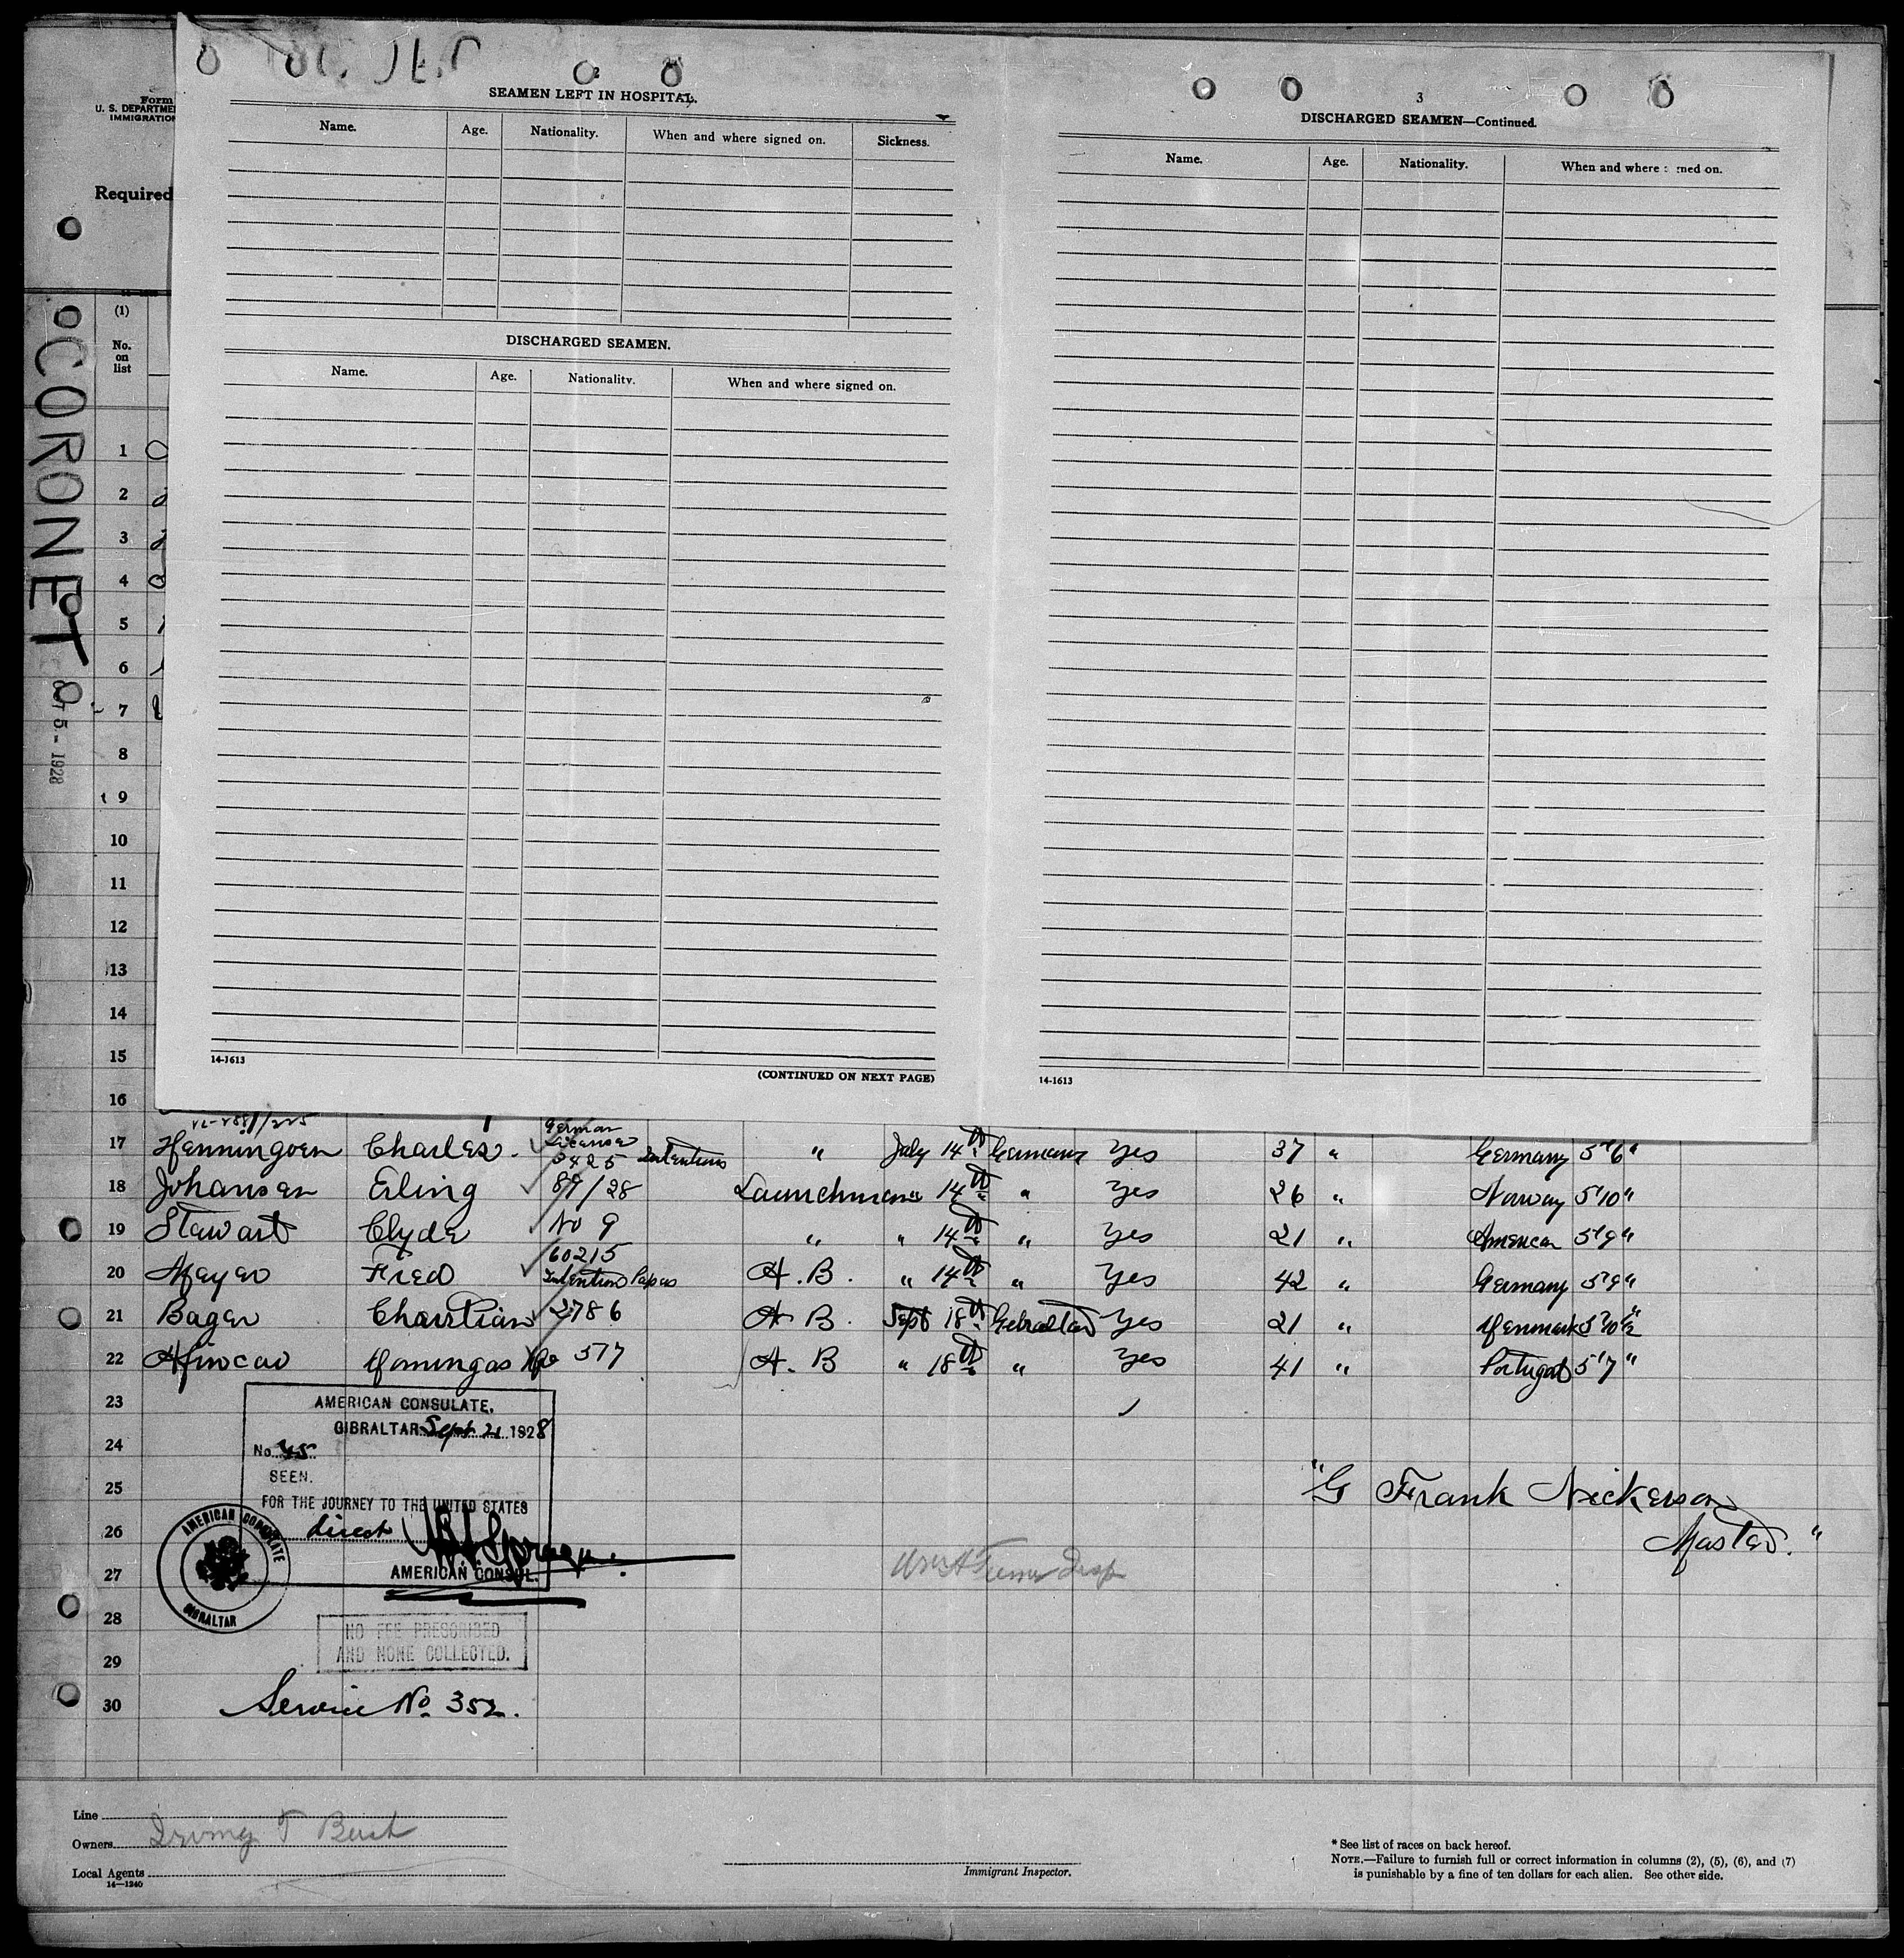 Form
U. S. DEPARTME
IMMIGRATION
Required
CORONET
OCT 5 - 1928
2
SEAMEN LEFT IN HOSPITAL.
Name. Age. Nationality. When and where signed on. Sickness.
DISCHARGED SEAMEN.
Name. Age. Nationality. When and where signed on.
14-1613
(CONTINUED ON NEXT PAGE)
3
DISCHARGED SEAMEN—Continued.
Name. Age. Nationality. When and where ned on.
14-1613
(1)
No.
on
list
1
2
3
4
5
6
7
8
9
10
11
12
13
14
15
16
German
License
17 Henningsen Charles. 3425 Intentions " July 14th Germany Yes 37 " Germany 5'6"
18 Johansen Erling 89/28 Launchman " 14th " Yes 26 " Norway 5'10"
19 Stewart Clyde No 9 " " 14th " Yes 21 " American 5'9"
60215
20 Meyer Fred Intention Papers A. B. " 14th " Yes 42 " Germany 5'9"
21 Bager Christian 2786 A. B. Sept 18th Gibraltar Yes 21 " Denmark 5'10½"
22 Domingas No 517 A. B " 18th " Yes 41 " Portugal 5'7"
23
24
25
26
27
28
29
30
AMERICAN CONSULATE,
GIBRALTAR Sept 21 1928
No. 45
SEEN.
FOR THE JOURNEY TO THE UNITED STATES
direct
AMERICAN CONSUL.
AMERICAN CONSULATE
GIBRALTAR
NO FEE PRESCRIBED
AND NONE COLLECTED.
Service No. 352.
"G Frank Nickerson
Master."
Line
Owners Irving T Bush
Local Agents
14—1240
Immigrant Inspector.
* See list of races on back hereof.
NOTE.—Failure to furnish full or correct information in columns (2), (5), (6), and (7)
is punishable by a fine of ten dollars for each alien. See other side.